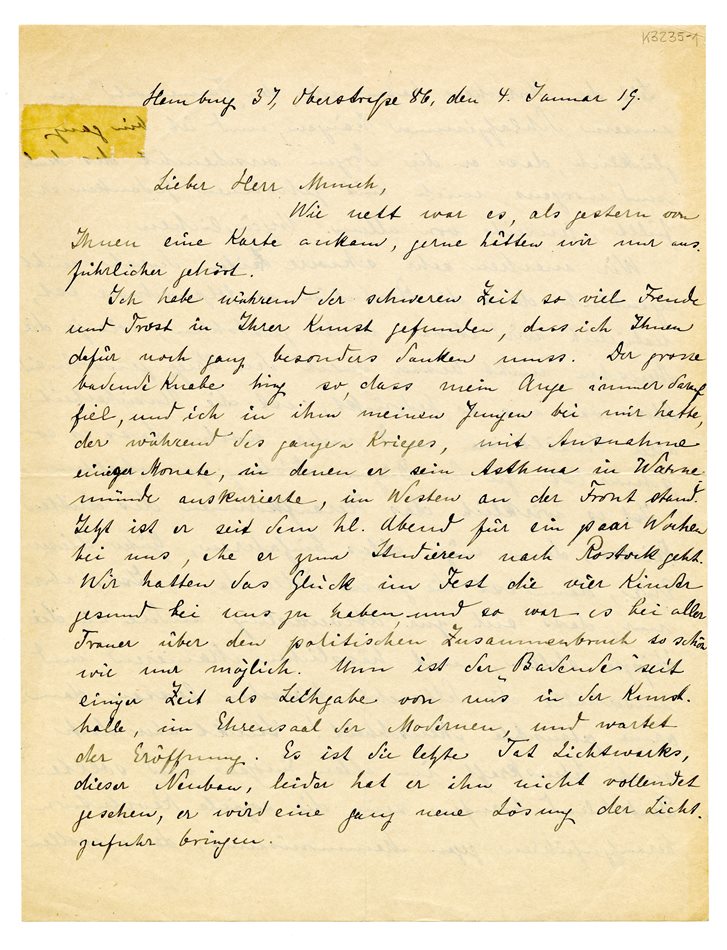 K3235-1
Hamburg 37, Oberstraße 86, den 4. Januar 19.
Lieber Herr Munch,
Wie nett war es, als gestern von
Ihnen eine Karte ankam, gerne hätten wir nur aus-
führlicher gehört.
Ich habe während der schweren Zeit so viel Freude
und Trost in Ihrer Kunst gefunden, dass ich Ihnen
dafür noch ganz besonders danken muss. Der grosse
badende Knabe hing so, dass mein Auge immer darauf
fiel, und ich in ihm meinen Jungen bei mir hatte,
der während des ganzen Krieges, mit Ausnahme
einiger Monate, in denen er sein Asthma in Warne-
münde auskurierte, im Westen an der Front stand.
Jetzt ist er seit dem hl. Abend für ein paar Wochen
bei uns, ehe er zum Studieren nach Rostock geht.
Wir hatten das Glück im Fest die vier Kinder
gesund bei uns zu haben, und so war es bei aller
Trauer über den politischen Zusammenbruch so schön
wie nur möglich. Nun ist der „Badende" seit
einiger Zeit als Leihgabe von uns in der Kunst-
halle, im Ehrensaal der Modernen, und wartet
der Eröffnung. Es ist die letzte Tat Lichtwarks,
dieser Neubau, leider hat er ihn nicht vollendet
gesehen, er wird eine ganz neue Lösung der Licht-
zufuhr bringen.